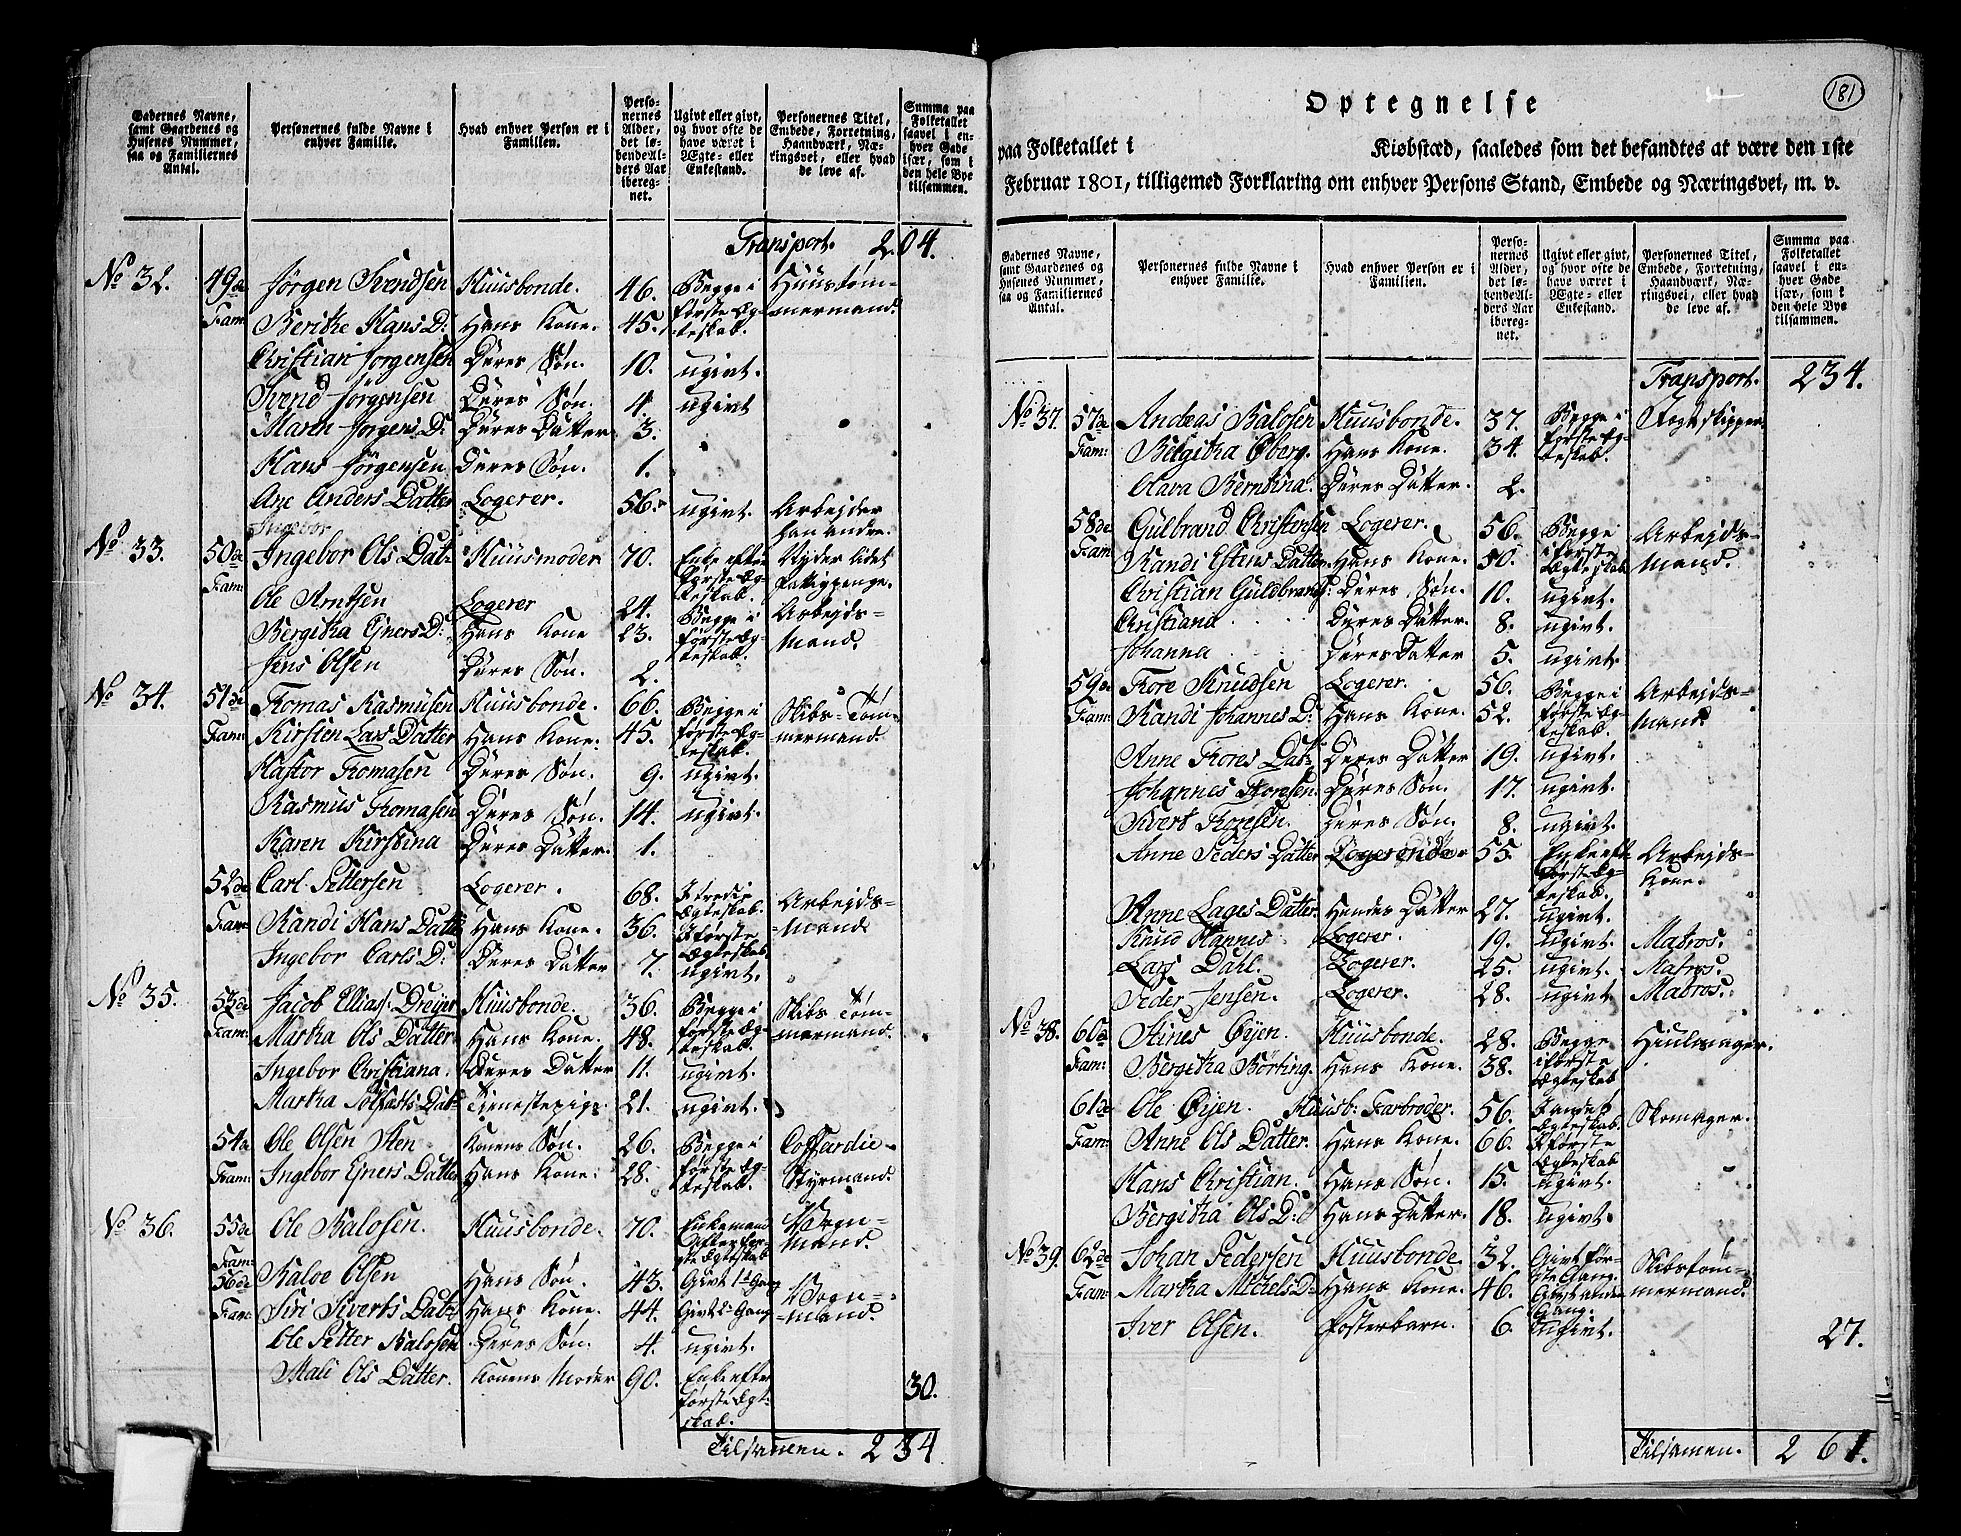 Gadernes Navne, samt Gaardenes og Husenes Nummer, saa og Familiernes Antal.
Personernes fulde Navne i enhver Familie.
Hvad enhver Person er i Familien.
Personernes Alder, det løbende Alders Aar iberegnet.
Ugivt eller givt, og hvor ofte de have været i Ægte- eller Enkestand.
Personernes Titel, Embede, Forretning, Haandværk, Næringsvei, eller hvad de leve af.
Summa paa Folketallet saavel i enhver Gade især, som i den hele Bye tilsammen.
Transport. 204.
No 32. 49de Fam: Jørgen Svendsen Huusbonde. 46. Begge i første Ægteskab. Huustømmermand.
Berithe Hans D: Hans Kone. 45.
Christian Jørgensen Deres Søn. 10. ugivt.
Svend Jørgensen Deres Søn. 4. ugivt
Maren Jørgens D: Deres Datter. 3.
Hans Jørgensen Deres Søn. 1.
Ane Anders Datter Logerer. 56. ugivt. Arbejder han andre.
Ingebor
No 33. 50de Fam: Ingebor Ols Dat: Huusmoder 70. Enke efter første Ægteskab. Nyder lidet Fattigpenge.
Ole Arntsen Logerer 24. Begge i første Ægteskab. Arbejdsmand.
Bergitha Ejners D: Hans Kone 23.
Jens Olsen Deres Søn. 2.
No 34. 51de Fam: Tomas Rasmusen Huusbonde. 66. Begge i første Ægteskab. Skibs-Tømmermand.
Kirsten Lars Datter Hans Kone. 45.
Kastor Tomasen Deres Søn. 9. ugivt.
Rasmus Tomasen Deres Søn. 14. ugivt.
Karen Kirstina Deres Datter. 1.
52de Fam: Carl Pettersen Logerer. 68. I tredie Ægteskab. Arbejdsmand
Randi Hans Datter Hans Kone. 36. I første Ægteskab
Ingebor Carls D: Deres Datter 7. ugivt.
No 35. 53de Fam: Jacob Ellias: Dreyer Huusbonde. 36. Begge i første Ægteskab. Skibs Tømmermand.
Martha Ols Datter Hans Kone. 48.
Ingebor Christiana. Deres Datter 11. ugivt.
Martha Solfasts Dat: Tienestepige. 21. ugivt.
54de Fam: Ole Olsen Sten Konens Søn. 26. Begge i første Ægteskab. Coffardie-Styrmand.
Ingebor Ejners Datter Hans Kone. 28.
No 36. 55de Fam: Ole Balosen. Huusbonde. 70. Enkemand efter første Ægteskab Vognmand.
56de Fam: Baloe Olsen Hans Søn. 43. Givt 1ste Gang Vognmand.
Siri Siverts Dat: Hans Kone. 44. Givt 2: Gang
Ole Petter Balosen Deres Søn. 4. ugivt.
Mali Ols Datter. Konens Moder 90. Enke efter første Ægteskab. 30.
Tilsammen. 234
181
Optegnelse
paa Folketallet i Kiøbstæd, saaledes som det befandtes at være den 1ste
Februar 1801, tilligemed Forklaring om enhver Persons Stand, Embede og Næringsvei, m. v.
Gadernes Navne, samt Gaardenes og Husenes Nummer, saa og Familiernes Antal.
Personernes fulde Navne i enhver Familie.
Hvad enhver Person er i Familien.
Personernes Alder, det løbende Alders Aar iberegnet.
Ugivt eller givt, og hvor ofte de have været i Ægte- eller Enkestand.
Personernes Titel, Embede, Forretning, Haandværk, Næringsvei, eller hvad de leve af.
Summa paa Folketallet saavel i enhver Gade især, som i den hele Bye tilsammen.
Transport. 234.
No 37. 57de Fam: Andeas Balosen Huusbonde. 37. Begge i første Ægteskab. Jagtskipper
Bergitha Øberg. Hans Kone. 34.
Olava Berntina. Deres Datter. 2.
58de Fam: Gulbrand Christensen Logerer. 56. Begge i første Ægteskab Arbejdsmand.
Randi Estens Datter Hans Kone. 50.
Christian Guldbrands: Deres Søn. 10. ugivt.
Christiana Deres Datter. 8. ugivt.
Johanna Deres Datter 5. ugivt.
59de Fam: Tore Knudsen Logerer. 56. Begge i første Ægteskab. Arbejdsmand
Randi Johannes D: Hans Kone. 52.
Anne Tores Dat: Deres Datter 19. ugivt.
Johannes Toresen. Deres Søn. 17. ugivt.
Sivert Toresen. Deres Søn. 8. ugivt.
Anne Peders Datter Logerende 55. Enke eft. første Ægteskab. Arbejdskone.
Anne Lages Datter. Hendes Datter 27. ugivt.
Knud Hannes Logerer. 19. ugivt. Matros.
Lars Dahl. Logerer. 25. ugivt. Matros.
Peder Jensen. Logerer. 28. ugivt. Matros.
No 38. 60de Fam: Stines Øyen. Huusbonde. 28. Begge i første Ægteskab Hiulmager.
Bergitha Børting. Hans Kone. 38.
61de Fam: Ole Øyen. Huusb: Farbroder. 56. I andet Ægteskab. Skomager.
Anne Ols Datter. Hans Kone. 66. I første Ægteskab
Hans Christian. Hans Søn. 15. ugivt.
Bergitha Ols D: Hans Datter. 18. ugivt.
No 39. 62de Fam: Johan Pedersen Huusbonde 32. Givt første Gang. Skibstømmermand.
Martha Michels D: Hans Kone. 46. Givt anden Gang.
Iver Olsen. Fosterbarn. 6. ugivt. 27.
Tilsamen. 261.